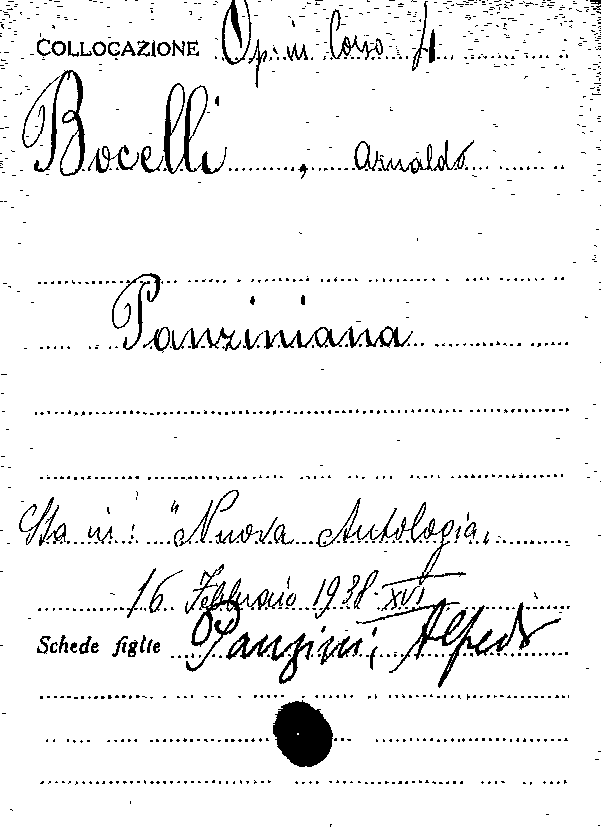 COLLOCAZIONE Op. in Corso 4
Bocelli , Arnaldo
Panziniana
Sta in: "Nuova Antologia„
16 Febbraio 1938 XVI
Schede figlie Panzini, Alfredo